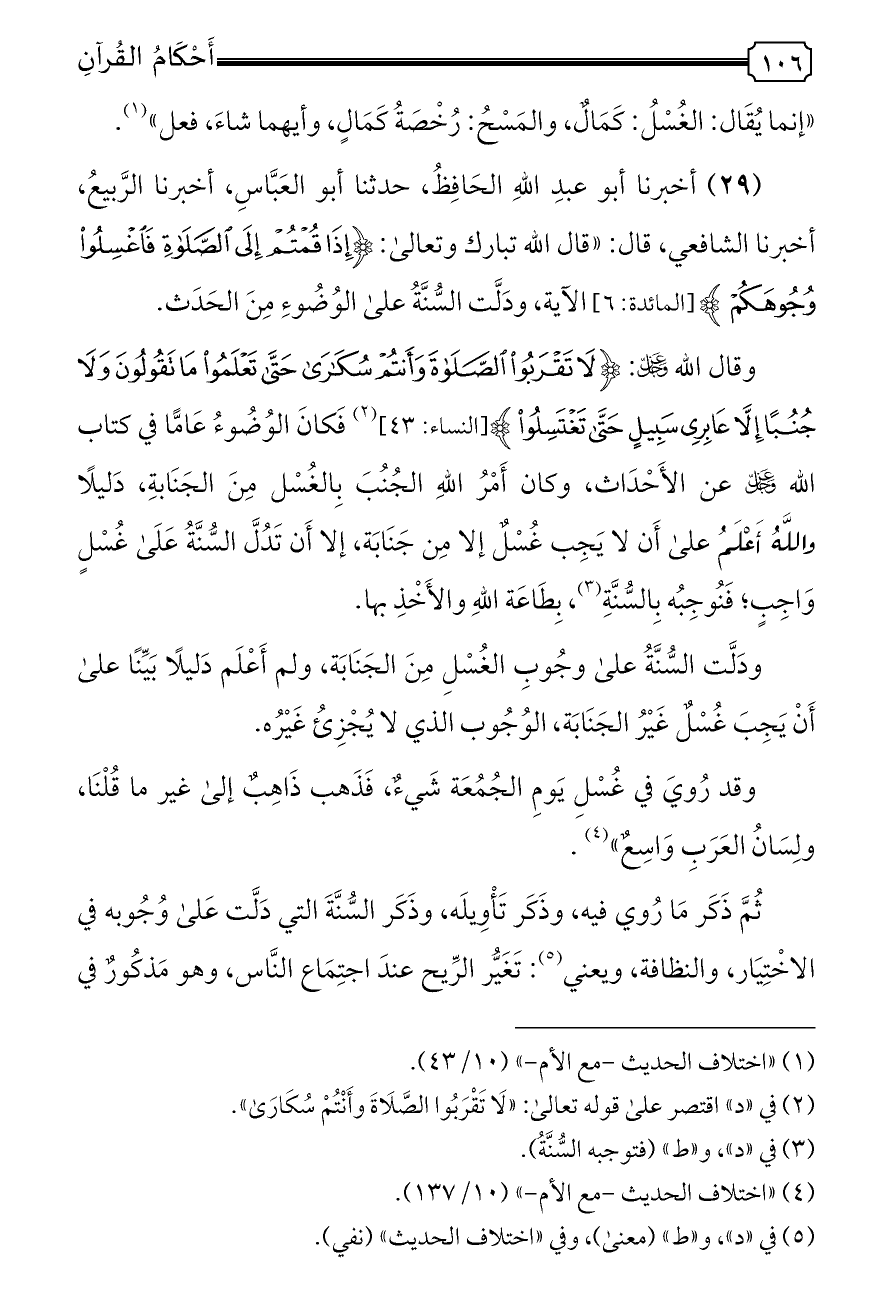 ١٠٦ أَحْكَامُ القُرآنِ
«إنما يُقَال: الغُسْلُ: كَمَالٌ، والمَسْحُ: رُخْصَةُ كَمَالٍ، وأيهما شاءَ، فعل»(١).
(٢٩) أخبرنا أبو عبدِ اللهِ الحَافِظُ، حدثنا أبو العَبَّاسِ، أخبرنا الرَّبيعُ،
أخبرنا الشافعي، قال: «قال الله تبارك وتعالىٰ: ﴿إِذَا قُمْتُمْ إِلَى ٱلصَّلَوٰةِ فَٱغْسِلُوا۟
وُجُوهَكُمْ﴾ [المائدة: ٦] الآية، ودَلَّت السُّنَّةُ علىٰ الوُضُوءِ مِنَ الحَدَث.
وقال الله ﷿: ﴿لَا تَقْرَبُوا۟ ٱلصَّلَوٰةَ وَأَنتُمْ سُكَـٰرَىٰ حَتَّىٰ تَعْلَمُوا۟ مَا تَقُولُونَ وَلَا
جُنُبًا إِلَّا عَابِرِى سَبِيلٍ حَتَّىٰ تَغْتَسِلُوا۟﴾[النساء: ٤٣](٢) فَكانَ الوُضُوءُ عَامًّا في كتاب
الله ﷿ عن الأَحْدَاث، وكان أَمْرُ اللهِ الجُنُبَ بِالغُسْل مِنَ الجَنَابةِ، دَليلًا
واللَّهُ أَعْلَمُ علىٰ أَن لا يَجِب غُسْلٌ إلا مِن جَنَابَة، إلا أَن تَدُلَّ السُّنَّةُ عَلَىٰ غُسْلٍ
وَاجِبٍ؛ فَنُوجِبُه بِالسُّنَّةِ(٣)، بِطَاعَة اللهِ والأَخْذِ بها.
ودَلَّت السُّنَّةُ علىٰ وجُوبِ الغُسْلِ مِنَ الجَنَابَة، ولم أَعْلَم دَليلًا بَيِّنًا علىٰ
أَنْ يَجِبَ غُسْلٌ غَيْرُ الجَنَابَة، الوُجُوب الذي لا يُجْزِئُ غَيْرُه.
وقد رُويَ في غُسْلِ يَومِ الجُمُعَة شَيءٌ، فَذَهب ذَاهِبٌ إلىٰ غير ما قُلْنَا،
ولِسَانُ العَرَبِ وَاسِعٌ»(٤).
ثُمَّ ذَكَر مَا رُوي فيه، وذَكَر تَأْوِيلَه، وذَكَر السُّنَّةَ التي دَلَّت عَلىٰ وُجُوبه في
الاخْتِيَار، والنظافة، ويعني(٥): تَغَيُّر الرِّيح عندَ اجتِمَاع النَّاس، وهو مَذكُورٌ في
(١) «اختلاف الحديث -مع الأم-» (١٠/ ٤٣).
(٢) في «د» اقتصر علىٰ قوله تعالىٰ: «لَا تَقْرَبُوا الصَّلَاةَ وأَنْتُمْ سُكَارَىٰ».
(٣) في «د»، و«ط» (فتوجبه السُّنَّةُ).
(٤) «اختلاف الحديث -مع الأم-» (١٠/ ١٣٧).
(٥) في «د»، و«ط» (معنىٰ)، وفي «اختلاف الحديث» (نفي).